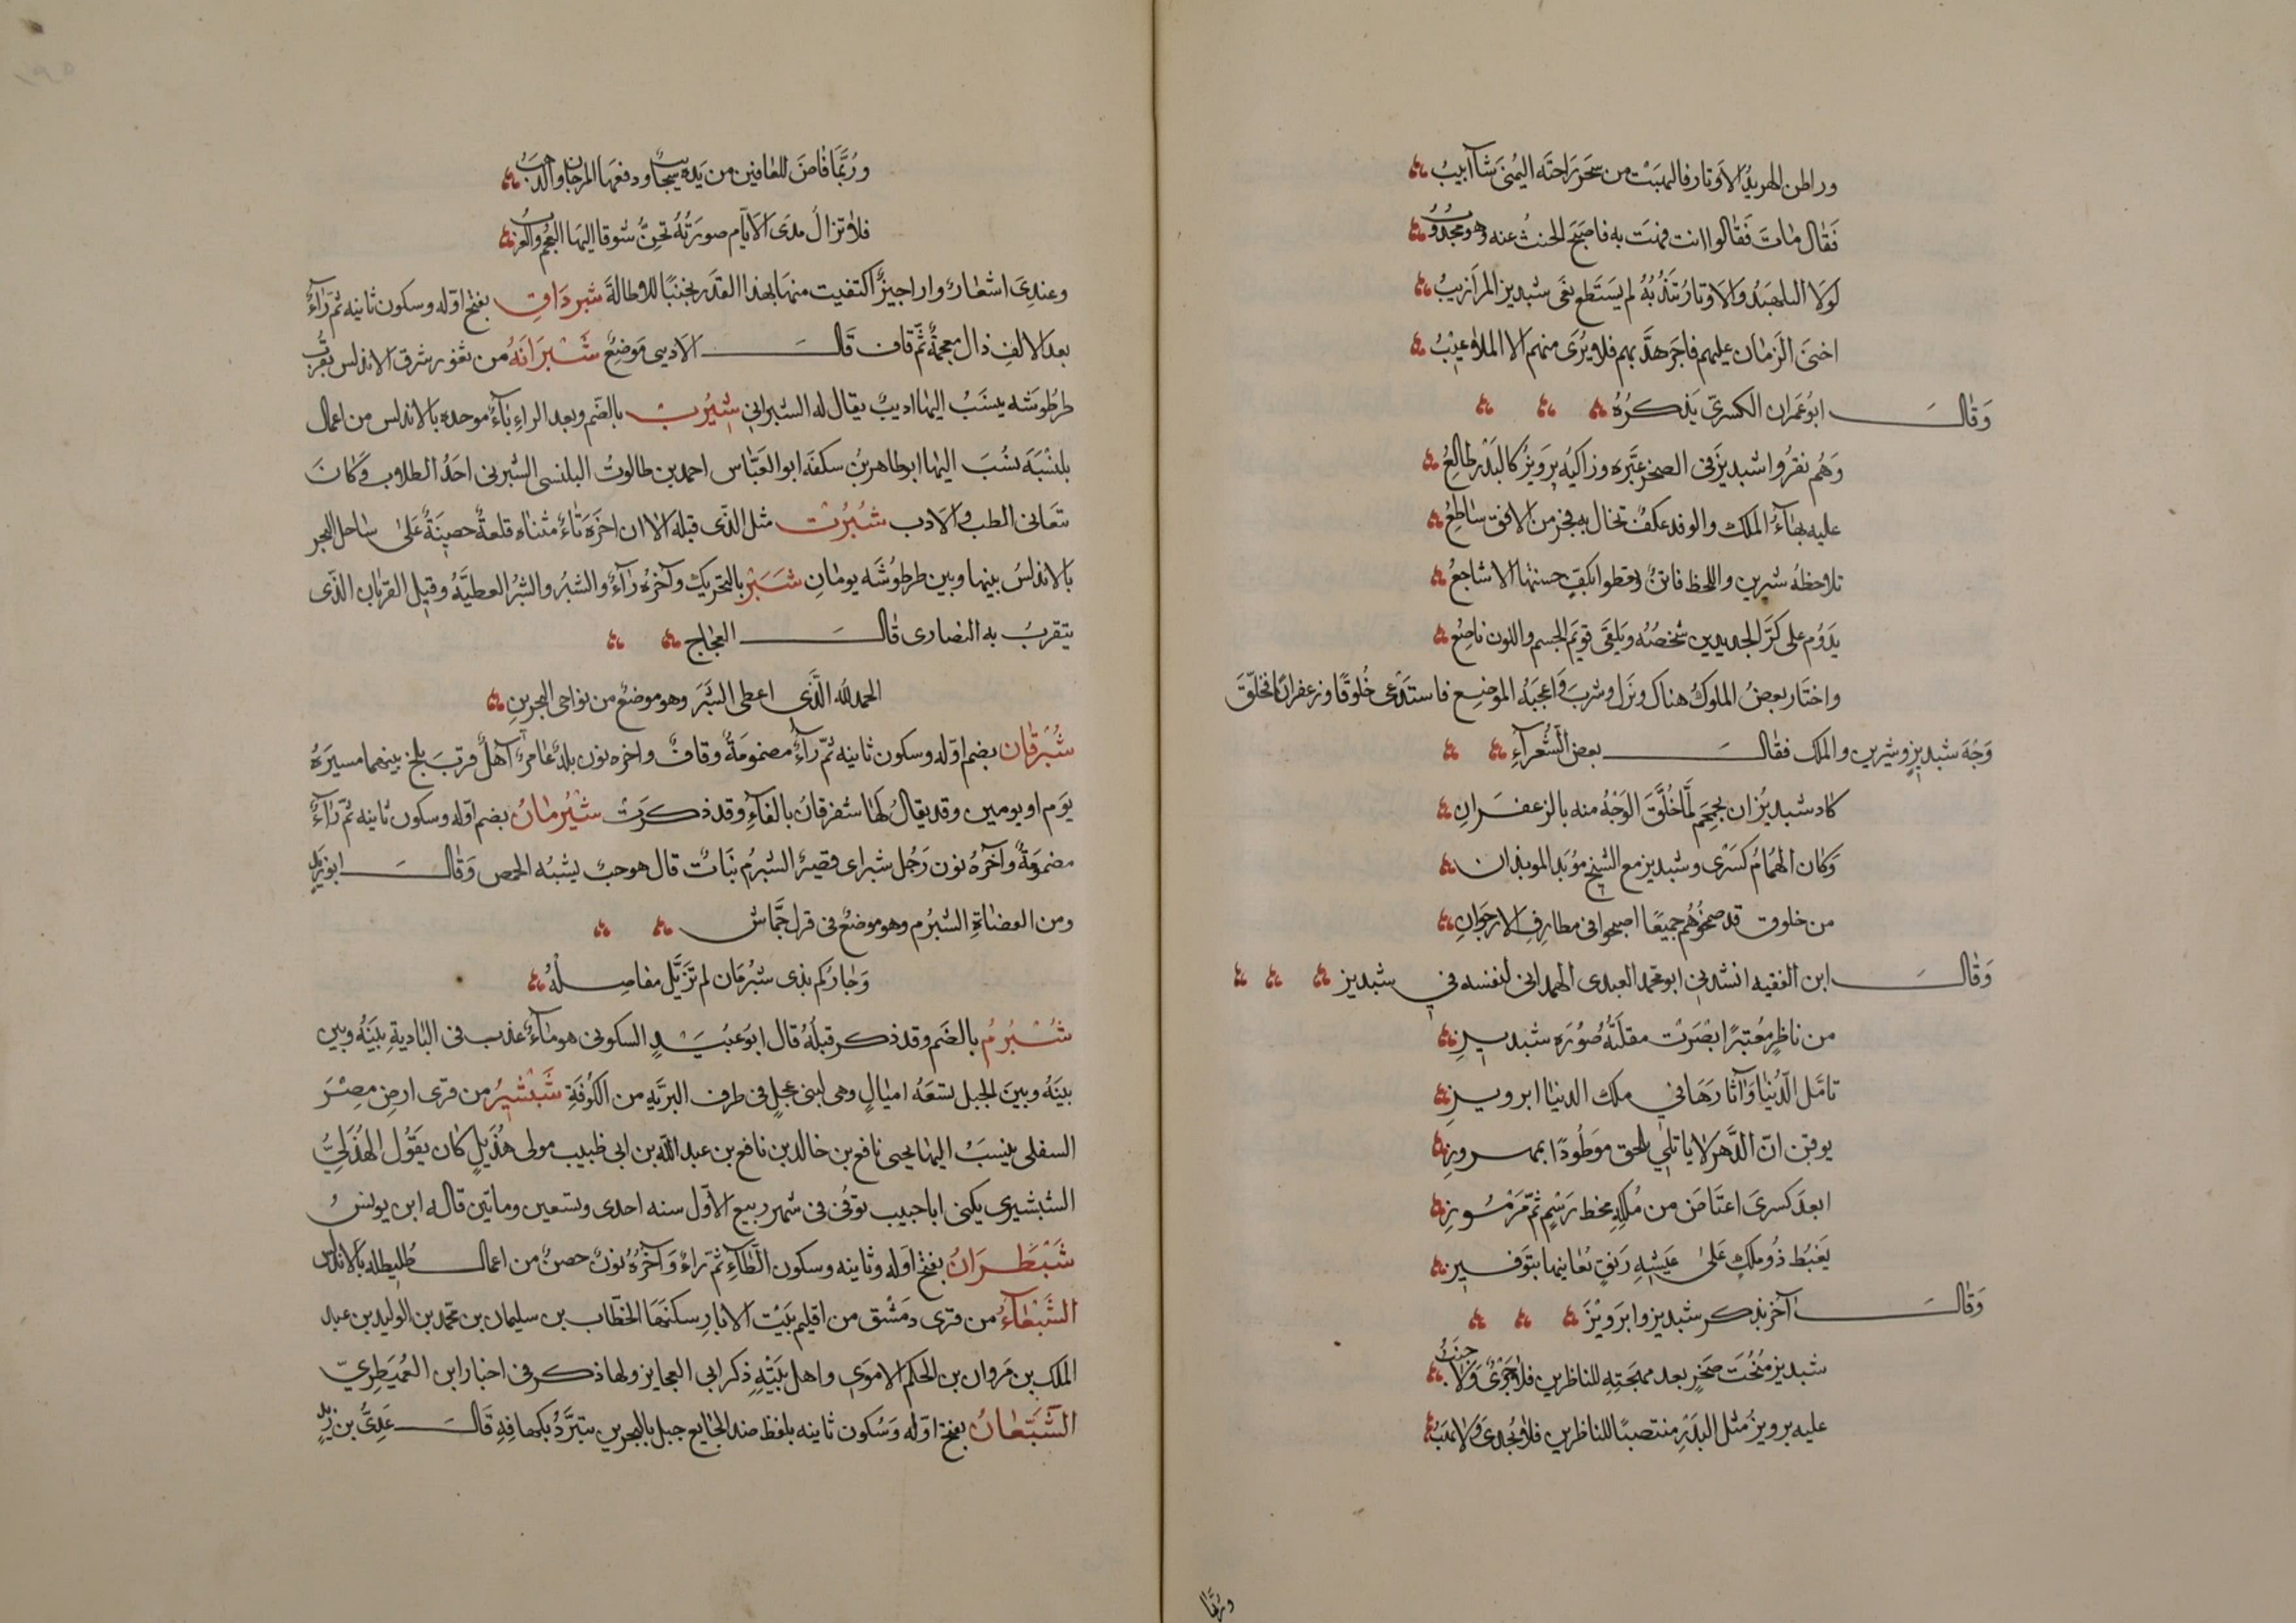 وراطن الهربذ الاوتار فالهبت من سحر راحته اليمنى شآابيب
فقال مات فقالوا انت فهت به فاصبح الحنث عنه وهو مجدوب
لولا البلهبد والاوتار تندبه لم يستطع نعى شبديز المرازيب
اخنى الزمان عليهم فاجرهد بهم فلا يرى منهم الا الملاعيب
وقال ابو عمران الكسرى يذكره
وهم نقروا شبديز فى الصخر عبرة وراكبه برويز كالبدر طالع
عليه بهآء الملك والوفد عكف تخال به فجر من الافق ساطع
تلاحظه شيرين واللحظ فاتن وتعطوا بكف حسنتها الاشاجع
يدوم على كر الجديدين شخصه ويلقى قويم الجسم واللون ناصع
واختار بعض الملوك هناك ونزل وشرب واعجبه الموضع فاستدعى خلوقا وزعفرانا فخلق
وجه شبديز وشيرين والملك فقال بعض الشعرآء
كاد شبديز ان يحمحم لما خلق الوجه منه بالزعفران
وكان الهمام كسرى وشبديز مع الشيخ موبد الموبذان
من خلوق قد ضمخوهم جميعا اصبحوا فى مطارف الارجوان
وقال ابن الفقيه انشدنى ابو محمد العبدى الهمدانى لنفسه في شبديز
من ناظر معتبرا ابصرت مقلته صورة شبديز
تامل الدنيا وآثارها في ملك الدنيا ابرويز
يوقن ان الدهر لا ياتلي يلحق موطودا بمهروز
ابعد كسرى اعتاض من ملكه مخط رسم ثم مرموز
يغبط ذو ملك على عيشه رنق يعانيها بتوفيز
وقال آخر يذكر شبديز وابرويز
شبديز منحت صخر بعد مهجته للناظرين فلا جرى ولا خبب
عليه برويز مثل البدر منتصبا للناظرين فلا يجدى ولا يهب
وربما
وربما فاض للعافين من يديه سجاب ودفعها المرجان والذهب
فلا تزال مدى الايام صورته تحن شوقا اليها العجم والعرب
وعندى اشعار واراجيز اكتفيت منها بهذا القدر تجنبا للاطالة شبرذاق بفتح اوله وسكون ثانيه ثم رآء
بعد الالف ذال معجمة ثم قاف قال الاديبى موضع شبرانة من ثغور شرق الاندلس بقرب
طرطوشه ينسب اليها اديب يقال له الشبرانى شبرب بالضم وبعد الراء بآء موحده بالاندلس من اعمال
بلنسية نسب اليها ابو طاهر بن سكفه ابو العباس احمد بن طالوت البلنسى الشبربى احد الطلاب وكان
تعانى الطب والادب شبرت مثل الذى قبله الا ان اخره تاء مثناه قلعة حصينة على ساحل البحر
بالاندلس بينها وبين طرطوشه يومان شبر بالتحريك وآخره رآء والشبر والشبر العطية وقيل القربان الذى
يتقرب به النصارى قال العجاج
الحمد لله الذى اعطى الشبر وهو موضع من نواحى البحرين
شبرقان بضم اوله وسكون ثانيه ثم رآء مضمومة وقاف واخره نون بلد عامر آهل قرب بلخ بينهما مسيرة
يوم او يومين وقد يقال لها شفرقان بالفآء وقد ذكرت شبرمان بضم اوله وسكون ثانيه ثم رآء
مضمومة وآخره نون رجل شبراى قصير الشبرم نبات قال هو حب يشبه الحمص وقال ابو زيد
ومن العضاة الشبرم وهو موضع فى قول جماش
وجاركم بذى شبرمان لم تزيل مفاصله
شبرم بالضم وقد ذكر قبله قال ابو عبيد السكونى هو مآء عذب فى البادية بينه وبين
بينه وبين الجبل تسعة اميال وهى لبنى عجل فى طرف البرية من الكوفة شبشير من قرى ارض مصر
السفلى ينسب اليها يحيى نافع بن خالد بن نافع بن عبد الله بن ابى ظبيب مولى هذيل كان يقول الهذلي
الشبشيرى يكنى ابا حبيب توفى فى شهر ربيع الاول سنه احدى وتسعين وماتين قاله ابن يونس
شبطران بفتح اوله وثانيه وسكون الطآء ثم راء وآخره نون حصن من اعمال طليطله بالاندلس
الشبعآء من قرى دمشق من اقليم بيت الابار سكنها الخطاب بن سليمان بن محمد بن الوليد بن عبد
الملك بن مروان بن الحكم الاموى واهل بيته ذكر ابى العجايز ولها ذكر فى اخبار ابن العميطرى
الشبعان بفتح اوله وسكون ثانيه بلفظ ضد الجايع جبل بالبحرين يتبرد بكهافه قال عدى بن زيد